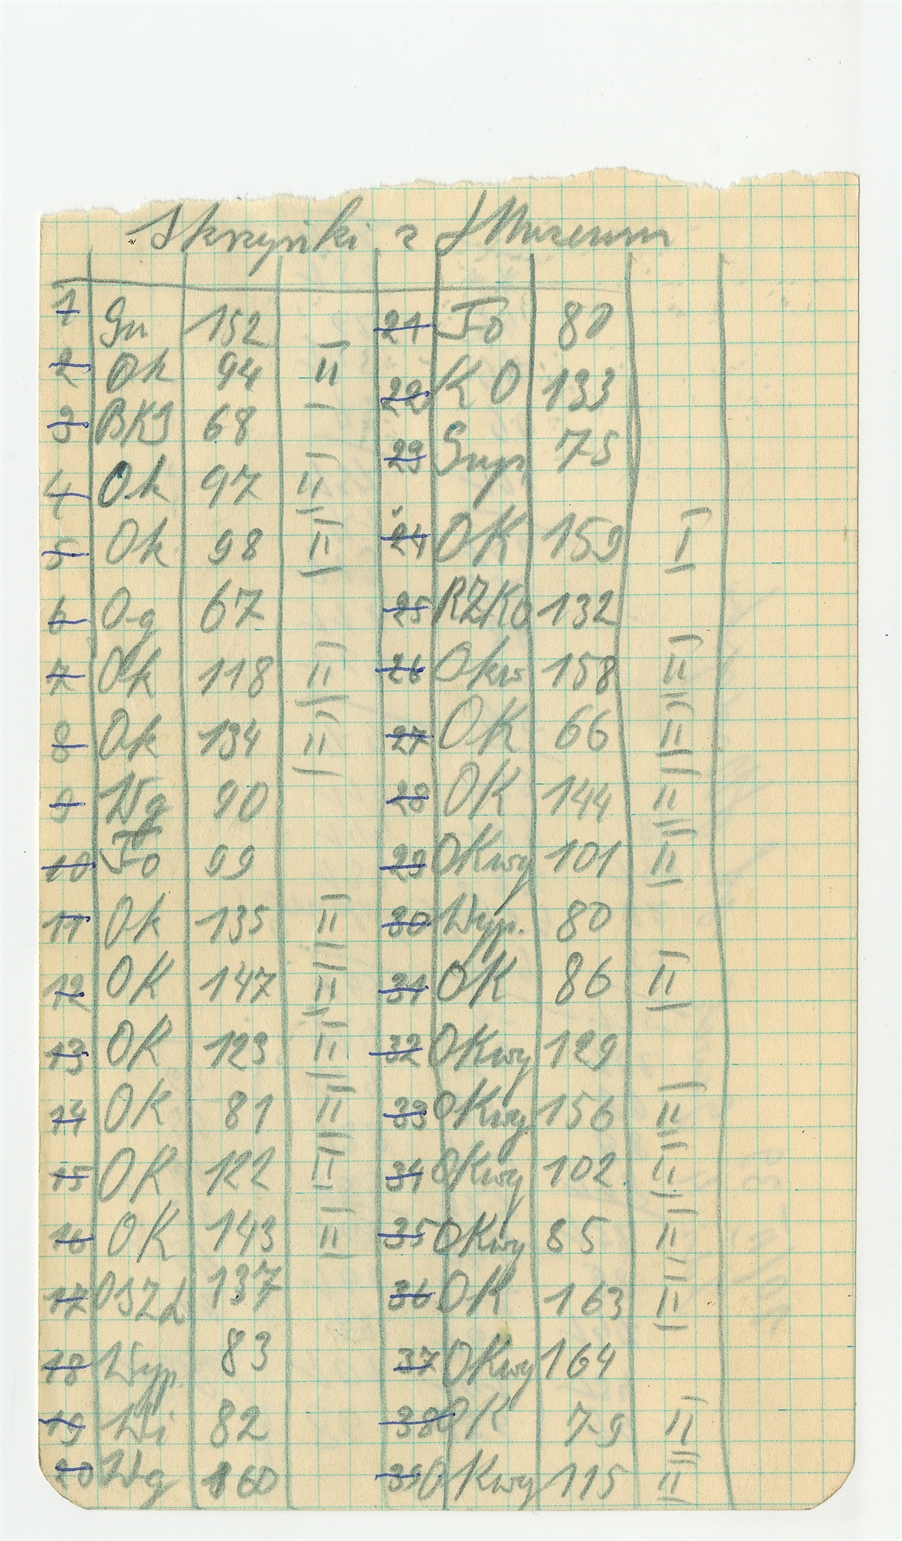 Skrzynki z J Muzeum
1 Gu 152
2 Ok 94 II
3 BKJ 68
4 Ok 97 II
5 Ok 98 II
6 Og 67
7 Ok 118 II
8 Ok 134 II
9 Wg 90
10 Fo 99
11 Ok 135 II
12 OK 147 II
13 OK 123 II
14 OK 81 II
15 OK 122 II
16 OK 143 II
17 137
18 Wyp. 83
19 Wi 82
20 Wg 160
21 Fo 80
22 KO 133
23 75
24 OK 159 I
25 RZKO 132
26 158 II
27 OK 66 II
28 OK 144 II
29 OKwy 101 II
30 Wyp. 80
31 OK 86 II
32 OKwy 129
33 OKwy 156 II
34 OKwy 102 II
35 OKwy 85 II
36 OK 163 II
37 OKwy 164
38 OK 79 II
39 OKwy 115 II